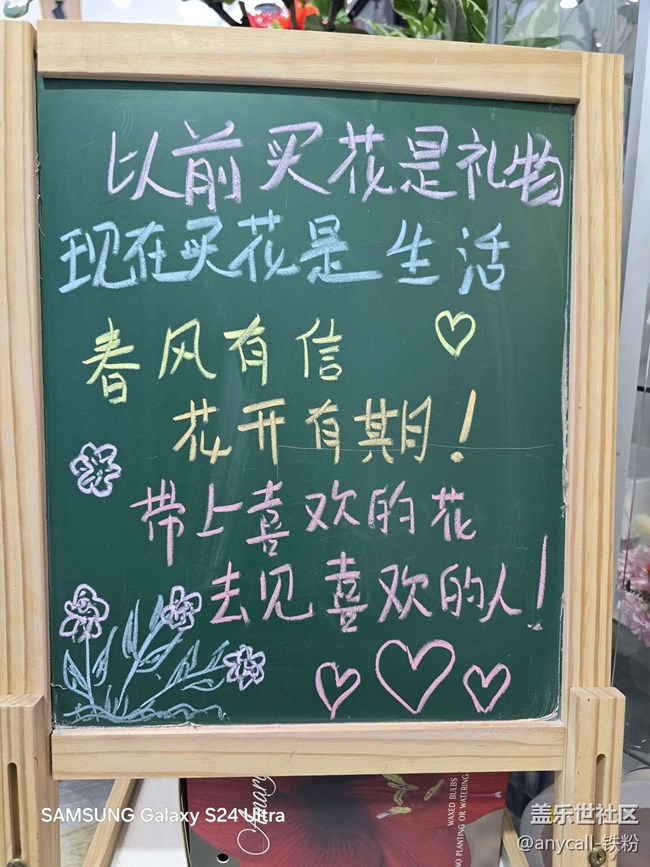 以前买花是礼物
现在买花是生活
春风有信
花开有期！
带上喜欢的花
去见喜欢的人！
WAXED BULBS
NO PLANTING OR WATERING
SAMSUNG Galaxy S24 Ultra
盖乐世社区
@anycall-铁粉